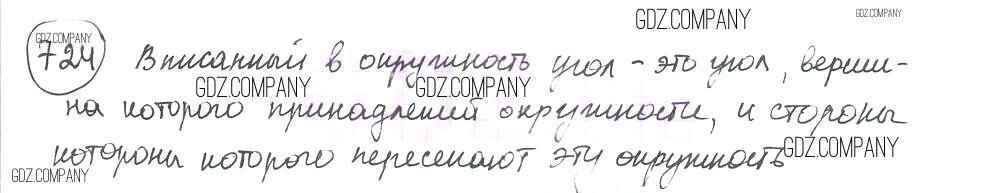 GDZ.COMPANY
GDZ.COMPANY
GDZ.COMPANY
724 Вписанный в окружность угол - это угол, верши-
GDZ.COMPANY GDZ.COMPANY
на которого принадлежит окружности, и стороны
GDZ.COMPANY
которого пересекают эту окружность
GDZ.COMPANY